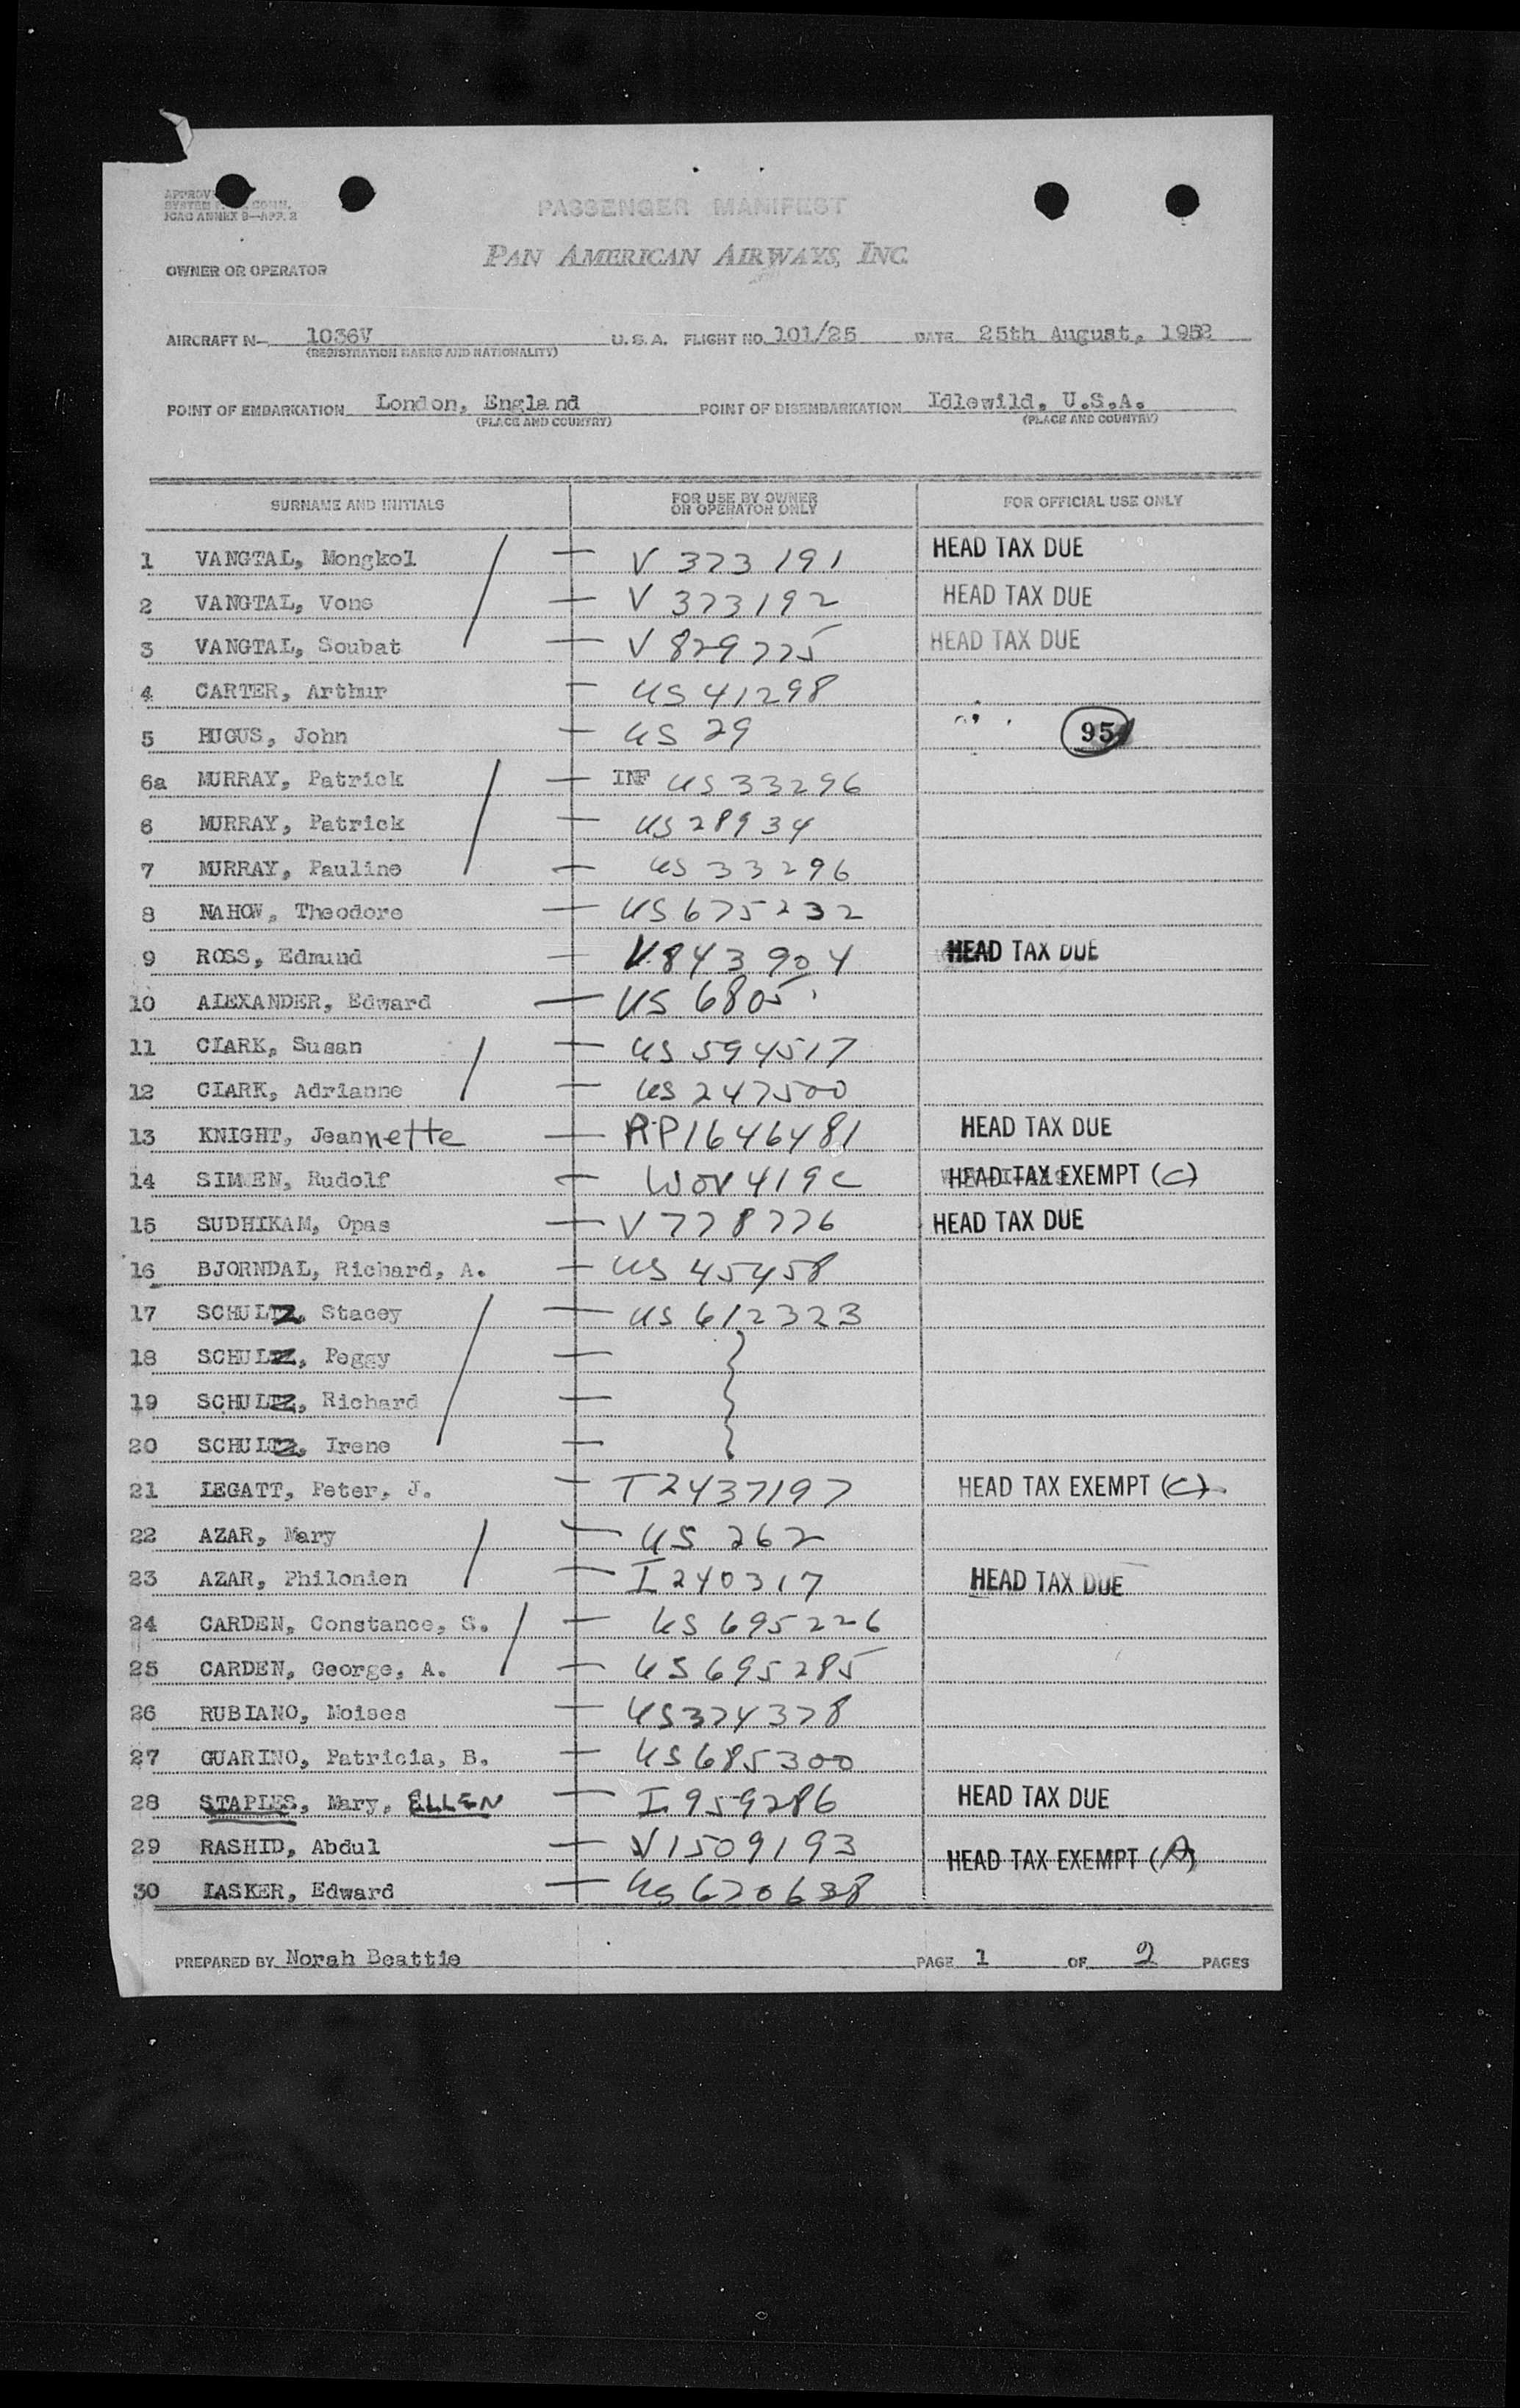 APPROV
SYSTEM COMM.
ICAO ANNEX 9—APP. 2
PASSENGER MANIFEST
PAN AMERICAN AIRWAYS, INC.
OWNER OR OPERATOR
AIRCRAFT N- 1036V U.S.A. FLIGHT NO. 101/25 DATE 25th August, 1952
(REGISTRATION MARKS AND NATIONALITY)
POINT OF EMBARKATION London, England POINT OF DISEMBARKATION Idlewild, U.S.A.
(PLACE AND COUNTRY) (PLACE AND COUNTRY)
SURNAME AND INITIALS FOR USE BY OWNER OR OPERATOR ONLY FOR OFFICIAL USE ONLY
1 VANGTAL, Mongkol — V 373191 HEAD TAX DUE
2 VANGTAL, Vons — V 373192 HEAD TAX DUE
3 VANGTAL, Soubat — V 829775 HEAD TAX DUE
4 CARTER, Arthur — US 41298
5 HUGUS, John — US 29 95
6a MURRAY, Patrick — INF US 33296
6 MURRAY, Patrick — US 28934
7 MURRAY, Pauline — US 33296
8 NAHOW, Theodore — US 675232
9 ROSS, Edmund — V 843904 HEAD TAX DUE
10 ALEXANDER, Edward — US 6805
11 CLARK, Susan — US 594517
12 CLARK, Adrianne — US 247500
13 KNIGHT, Jeannette — RP1646481 HEAD TAX DUE
14 SIMEN, Rudolf — WOV 419C HEAD TAX EXEMPT (C)
15 SUDHIKAM, Opas — V 778776 HEAD TAX DUE
16 BJORNDAL, Richard, A. — US 45458
17 SCHULTZ, Stacey — US 612323
18 SCHULTZ, Peggy —
19 SCHULTZ, Richard —
20 SCHULTZ, Irene —
21 LEGATT, Peter, J. — T2437197 HEAD TAX EXEMPT (C)
22 AZAR, Mary — US 262
23 AZAR, Philonien — I 240317 HEAD TAX DUE
24 CARDEN, Constance, S. — US 695226
25 CARDEN, George, A. — US 695285
26 RUBIANO, Moises — US 374378
27 GUARINO, Patricia, B. — US 685300
28 STAPLES, Mary, ELLEN — I 959286 HEAD TAX DUE
29 RASHID, Abdul — V1509193 HEAD TAX EXEMPT (A)
30 LASKER, Edward — US 670638
PREPARED BY Norah Beattie PAGE 1 OF 2 PAGES